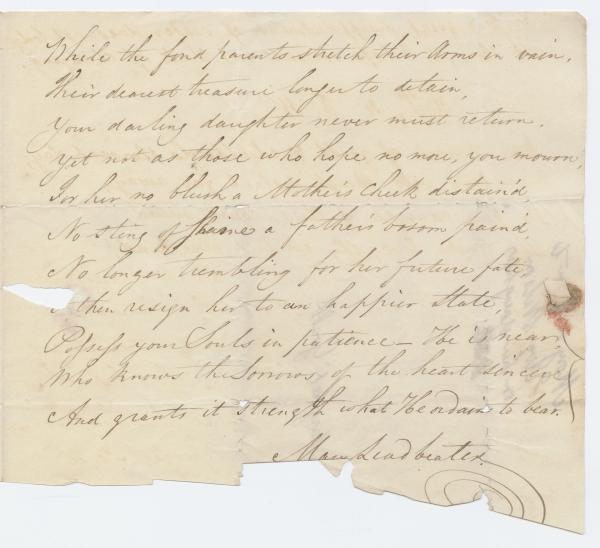 While the fond parents stretch their Arms in vain,
Their dearest treasure longer to detain,
Your darling daughter never must return.
Yet not as those who hope no more, you mourn,
For her no blush a Mother's Cheek distain'd,
No sting of Shame a father's bosom pain'd,
No longer trembling for her future fate
then resign her to an happier state,
Possess your Souls in patience – He is near,
Who knows the Sorrows of the heart sincere
And grants it strength what He ordains to bear.
Mary Leadbeater.